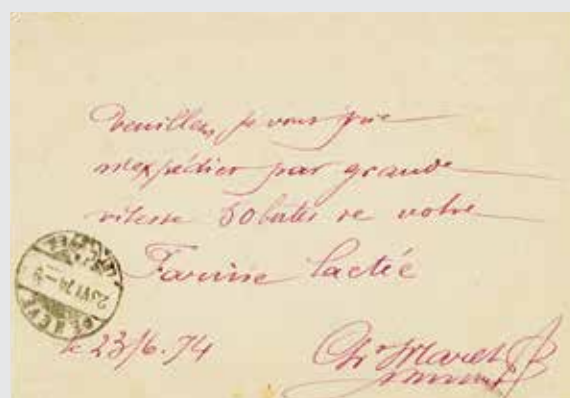 Veuillez, je vous prie
m'expédier par grande
vitesse 50 boites de votre
Farine lactée
23 VI 74 - 9
GENEVE
le 23/6. 74
Maret